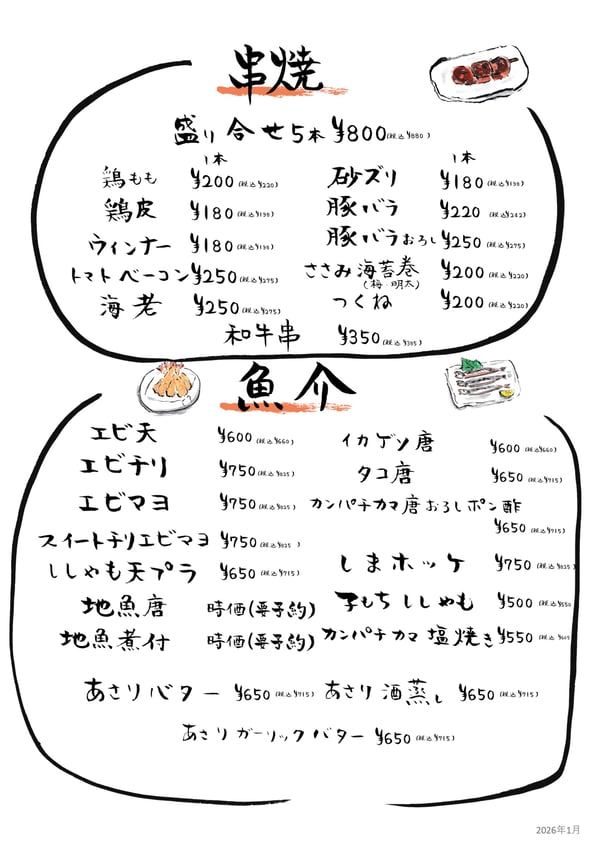 串焼
盛り合せ5本 ¥800(税込¥880)
1本
鶏もも ¥200(税込¥220)
鶏皮 ¥180(税込¥198)
ウィンナー ¥180(税込¥198)
トマトベーコン ¥250(税込¥275)
海老 ¥250(税込¥275)
1本
砂ズリ ¥180(税込¥198)
豚バラ ¥220(税込¥242)
豚バラおろし ¥250(税込¥275)
ささみ海苔巻 ¥200(税込¥220)
(梅・明太)
つくね ¥200(税込¥220)
和牛串 ¥350(税込¥385)
魚介
エビ天 ¥600(税込¥660)
エビチリ ¥750(税込¥825)
エビマヨ ¥750(税込¥825)
スイートチリエビマヨ ¥750(税込¥825)
ししゃも天プラ ¥650(税込¥715)
地魚唐 時価(要予約)
地魚煮付 時価(要予約)
イカゲソ唐 ¥600(税込¥660)
タコ唐 ¥650(税込¥715)
カンパチカマ唐おろしポン酢
¥650(税込¥715)
しまホッケ ¥750(税込¥825)
子もちししゃも ¥500(税込¥550)
カンパチカマ塩焼き ¥550(税込¥605)
あさりバター ¥650(税込¥715)
あさり酒蒸し ¥650(税込¥715)
あさりガーリックバター ¥650(税込¥715)
2026年1月